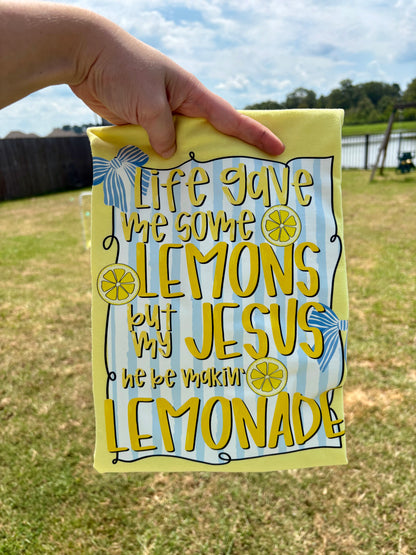 Life gave
me some
LEMONS
but
my JESUS
he be makin'
LEMONADE